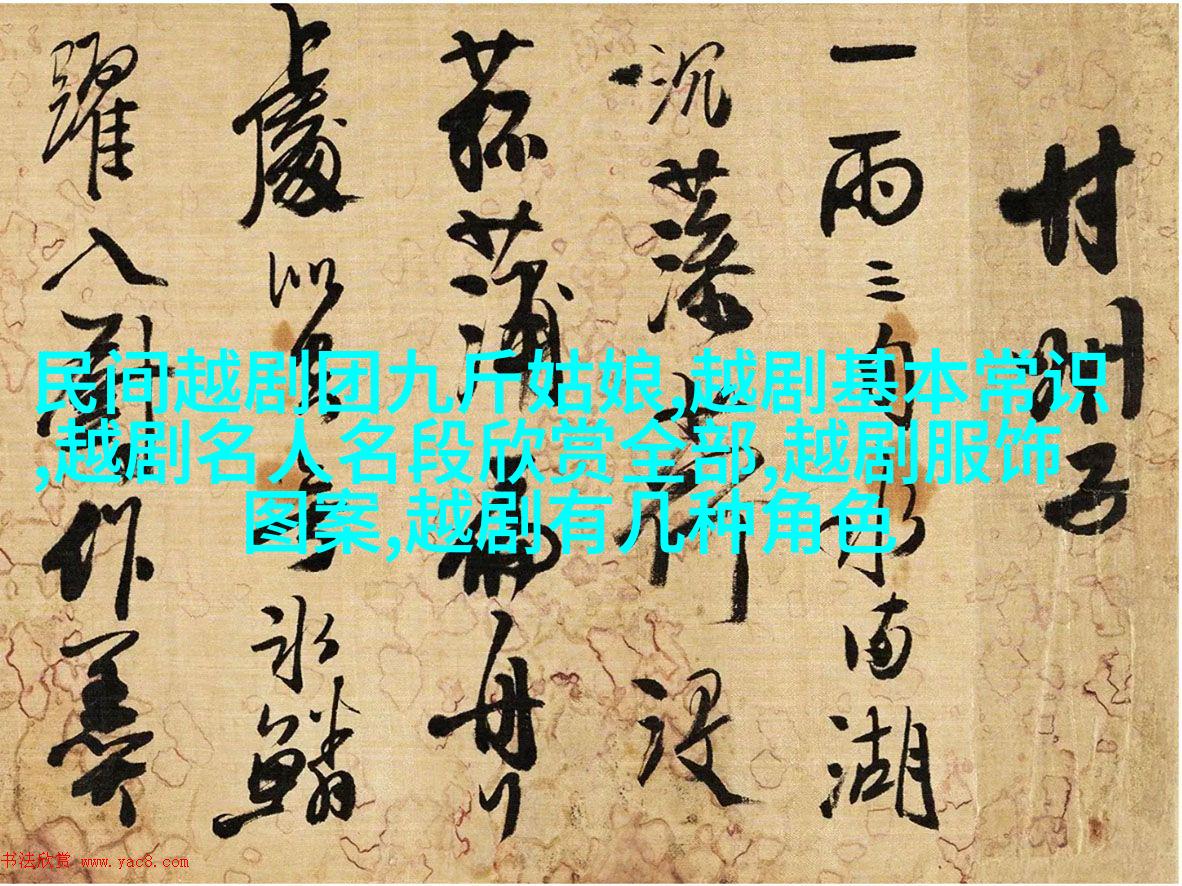 甘州子
一雨三旬水湖
沉藻荇没
菰蒲扁舟
上處冰鱗
躍入作羹
民间越剧团九斤姑娘,越剧基本常识
,越剧名人名段欣赏全部,越剧服饰
图案,越剧有几种角色
书法欣赏 www.yac8.com